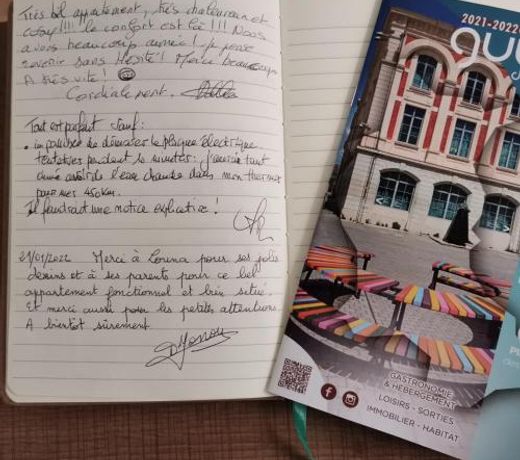 Très bel appartement, très chaleureux et
cosy!!! le confort est là!!! Nous
avons beaucoup aimé! je pense
revenir sans hésité! Merci beaucoup
A très vite!
Cordialement.
Tout est parfait sauf:
de démarrer la plaque électrique
pendant 10 minutes: j'aurais tant
aimé avoir de l'eau chaude dans mon thermos
pour mes 450km.
Il faudrait une notice explicative!
21/01/2022 Merci à Lorena pour ses jolis
dessins et à ses parents pour ce bel
appartement fonctionnel et bien situé.
Et merci aussi pour les petites attentions.
A bientôt sûrement
2021-2022
GASTRONOMIE
& HÉBERGEMENT
LOISIRS - SORTIES
IMMOBILIER - HABITAT